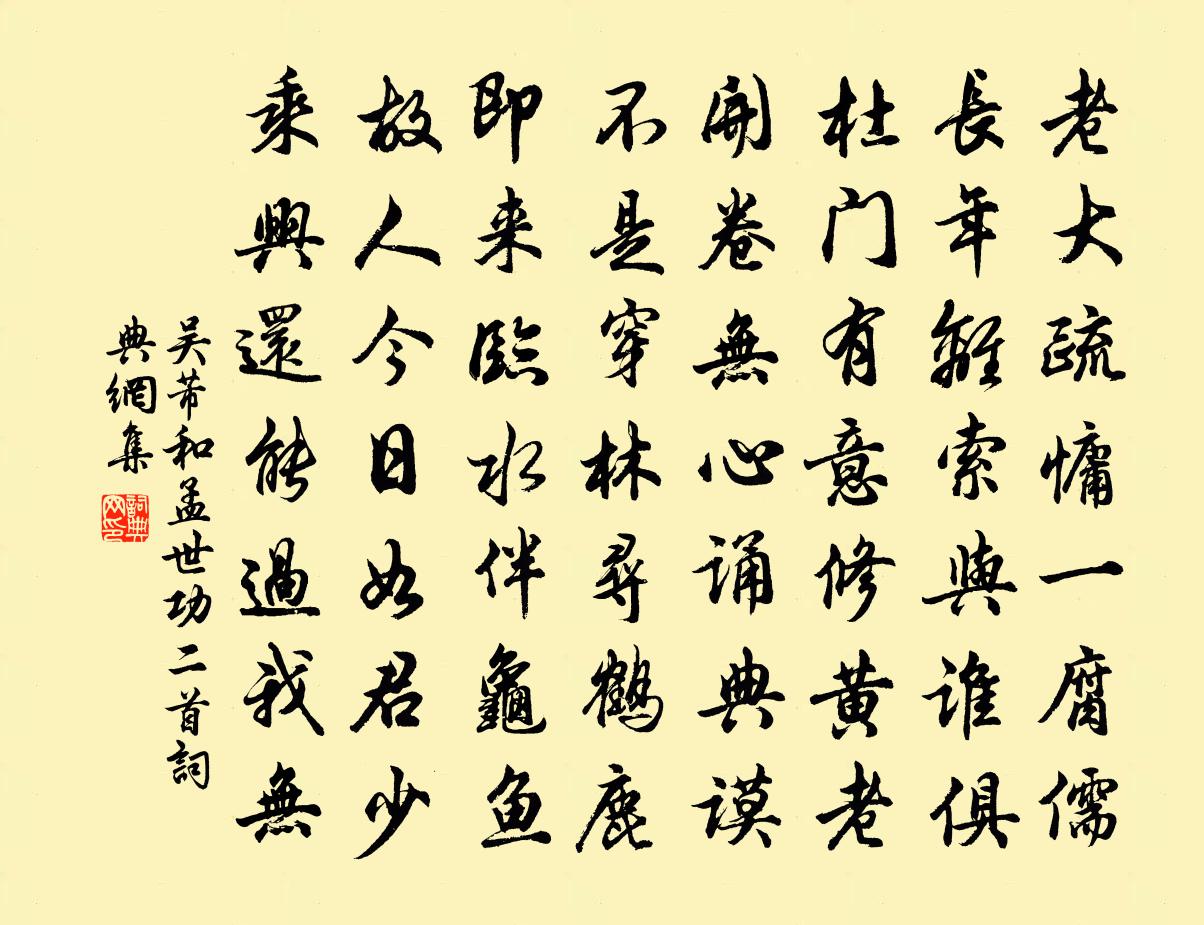 老大疏慵一腐儒
長年離索與誰俱
杜门有意修黄老
開卷無心诵典谟
不是穿林尋鶴鹿
即来臨水伴龜鱼
故人今日如君少
乘興還能過我無
吴芾和孟世功二首詞
典網集
詞典
网印